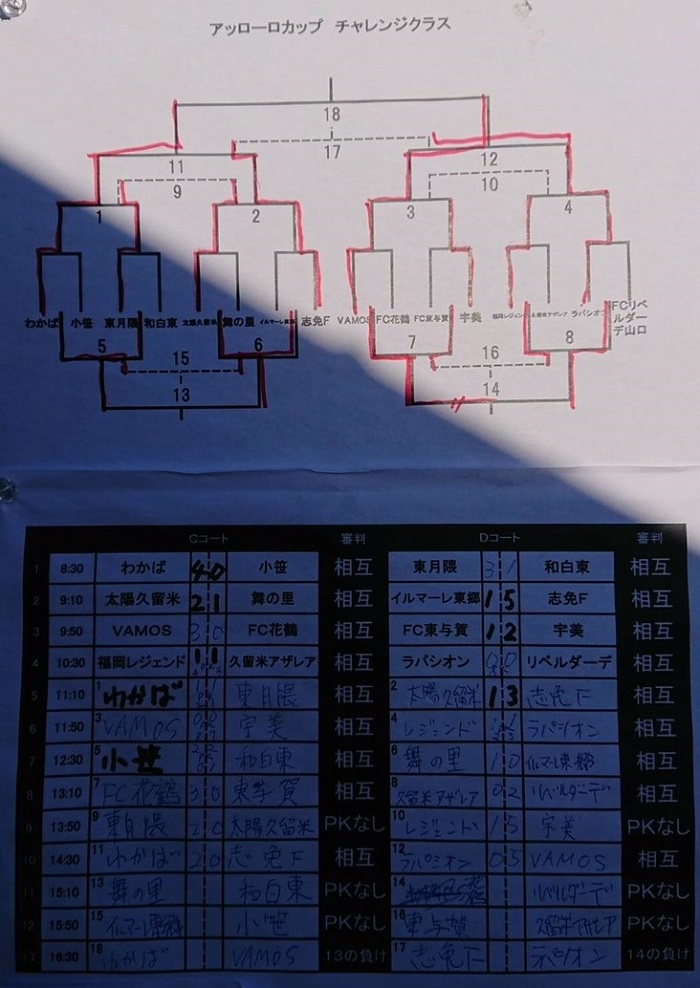 アッローロカップ チャレンジクラス
18
17
11 12
9 10
1 2 3 4
わかば 小笹 東月隈 和白東 太陽久留米 舞の里 イルマーレ東郷 志免F VAMOS FC花鶴 FC東与賀 宇美 福岡レジェンド 久留米アザレア ラパシオン FCリベルダーデ山口
5 6 7 8
15 16
13 14
Cコート 審判 Dコート 審判
1 8:30 わかば 4 0 小笹 相互 東月隈 3 1 和白東 相互
2 9:10 太陽久留米 2 1 舞の里 相互 イルマーレ東郷 1 5 志免F 相互
3 9:50 VAMOS 3 0 FC花鶴 相互 FC東与賀 1 2 宇美 相互
4 10:30 福岡レジェンド 1 1 久留米アザレア 相互 ラパシオン 0 0 リベルダーデ 相互
5 11:10 1 わかば 東月隈 相互 2 太陽久留米 1 3 志免F 相互
6 11:50 3 VAMOS 宇美 相互 4 レジェンド ラパシオン 相互
7 12:30 5 小笹 和白東 相互 6 舞の里 1 0 イルマーレ東郷 相互
8 13:10 7 FC花鶴 3 0 東与賀 相互 8 久留米アザレア 0 2 リベルダーデ 相互
9 13:50 9 東月隈 2 0 太陽久留米 PKなし 10 レジェンド 1 5 宇美 PKなし
10 14:30 11 わかば 2 0 志免F 相互 12 ラパシオン 0 5 VAMOS 相互
11 15:10 13 舞の里 和白東 PKなし 14 リベルダーデ PKなし
12 15:50 15 イルマーレ東郷 小笹 PKなし 16 東与賀 久留米アザレア PKなし
13 16:30 18 わかば VAMOS 13の負け 17 志免F ラパシオン 14の負け